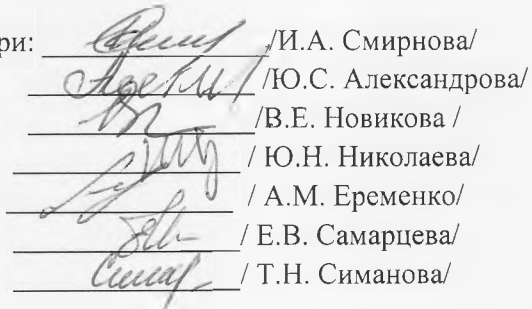 ри: /И.А. Смирнова/
/Ю.С. Александрова/
/В.Е. Новикова /
/ Ю.Н. Николаева/
/ А.М. Еременко/
/ Е.В. Самарцева/
/ Т.Н. Симанова/